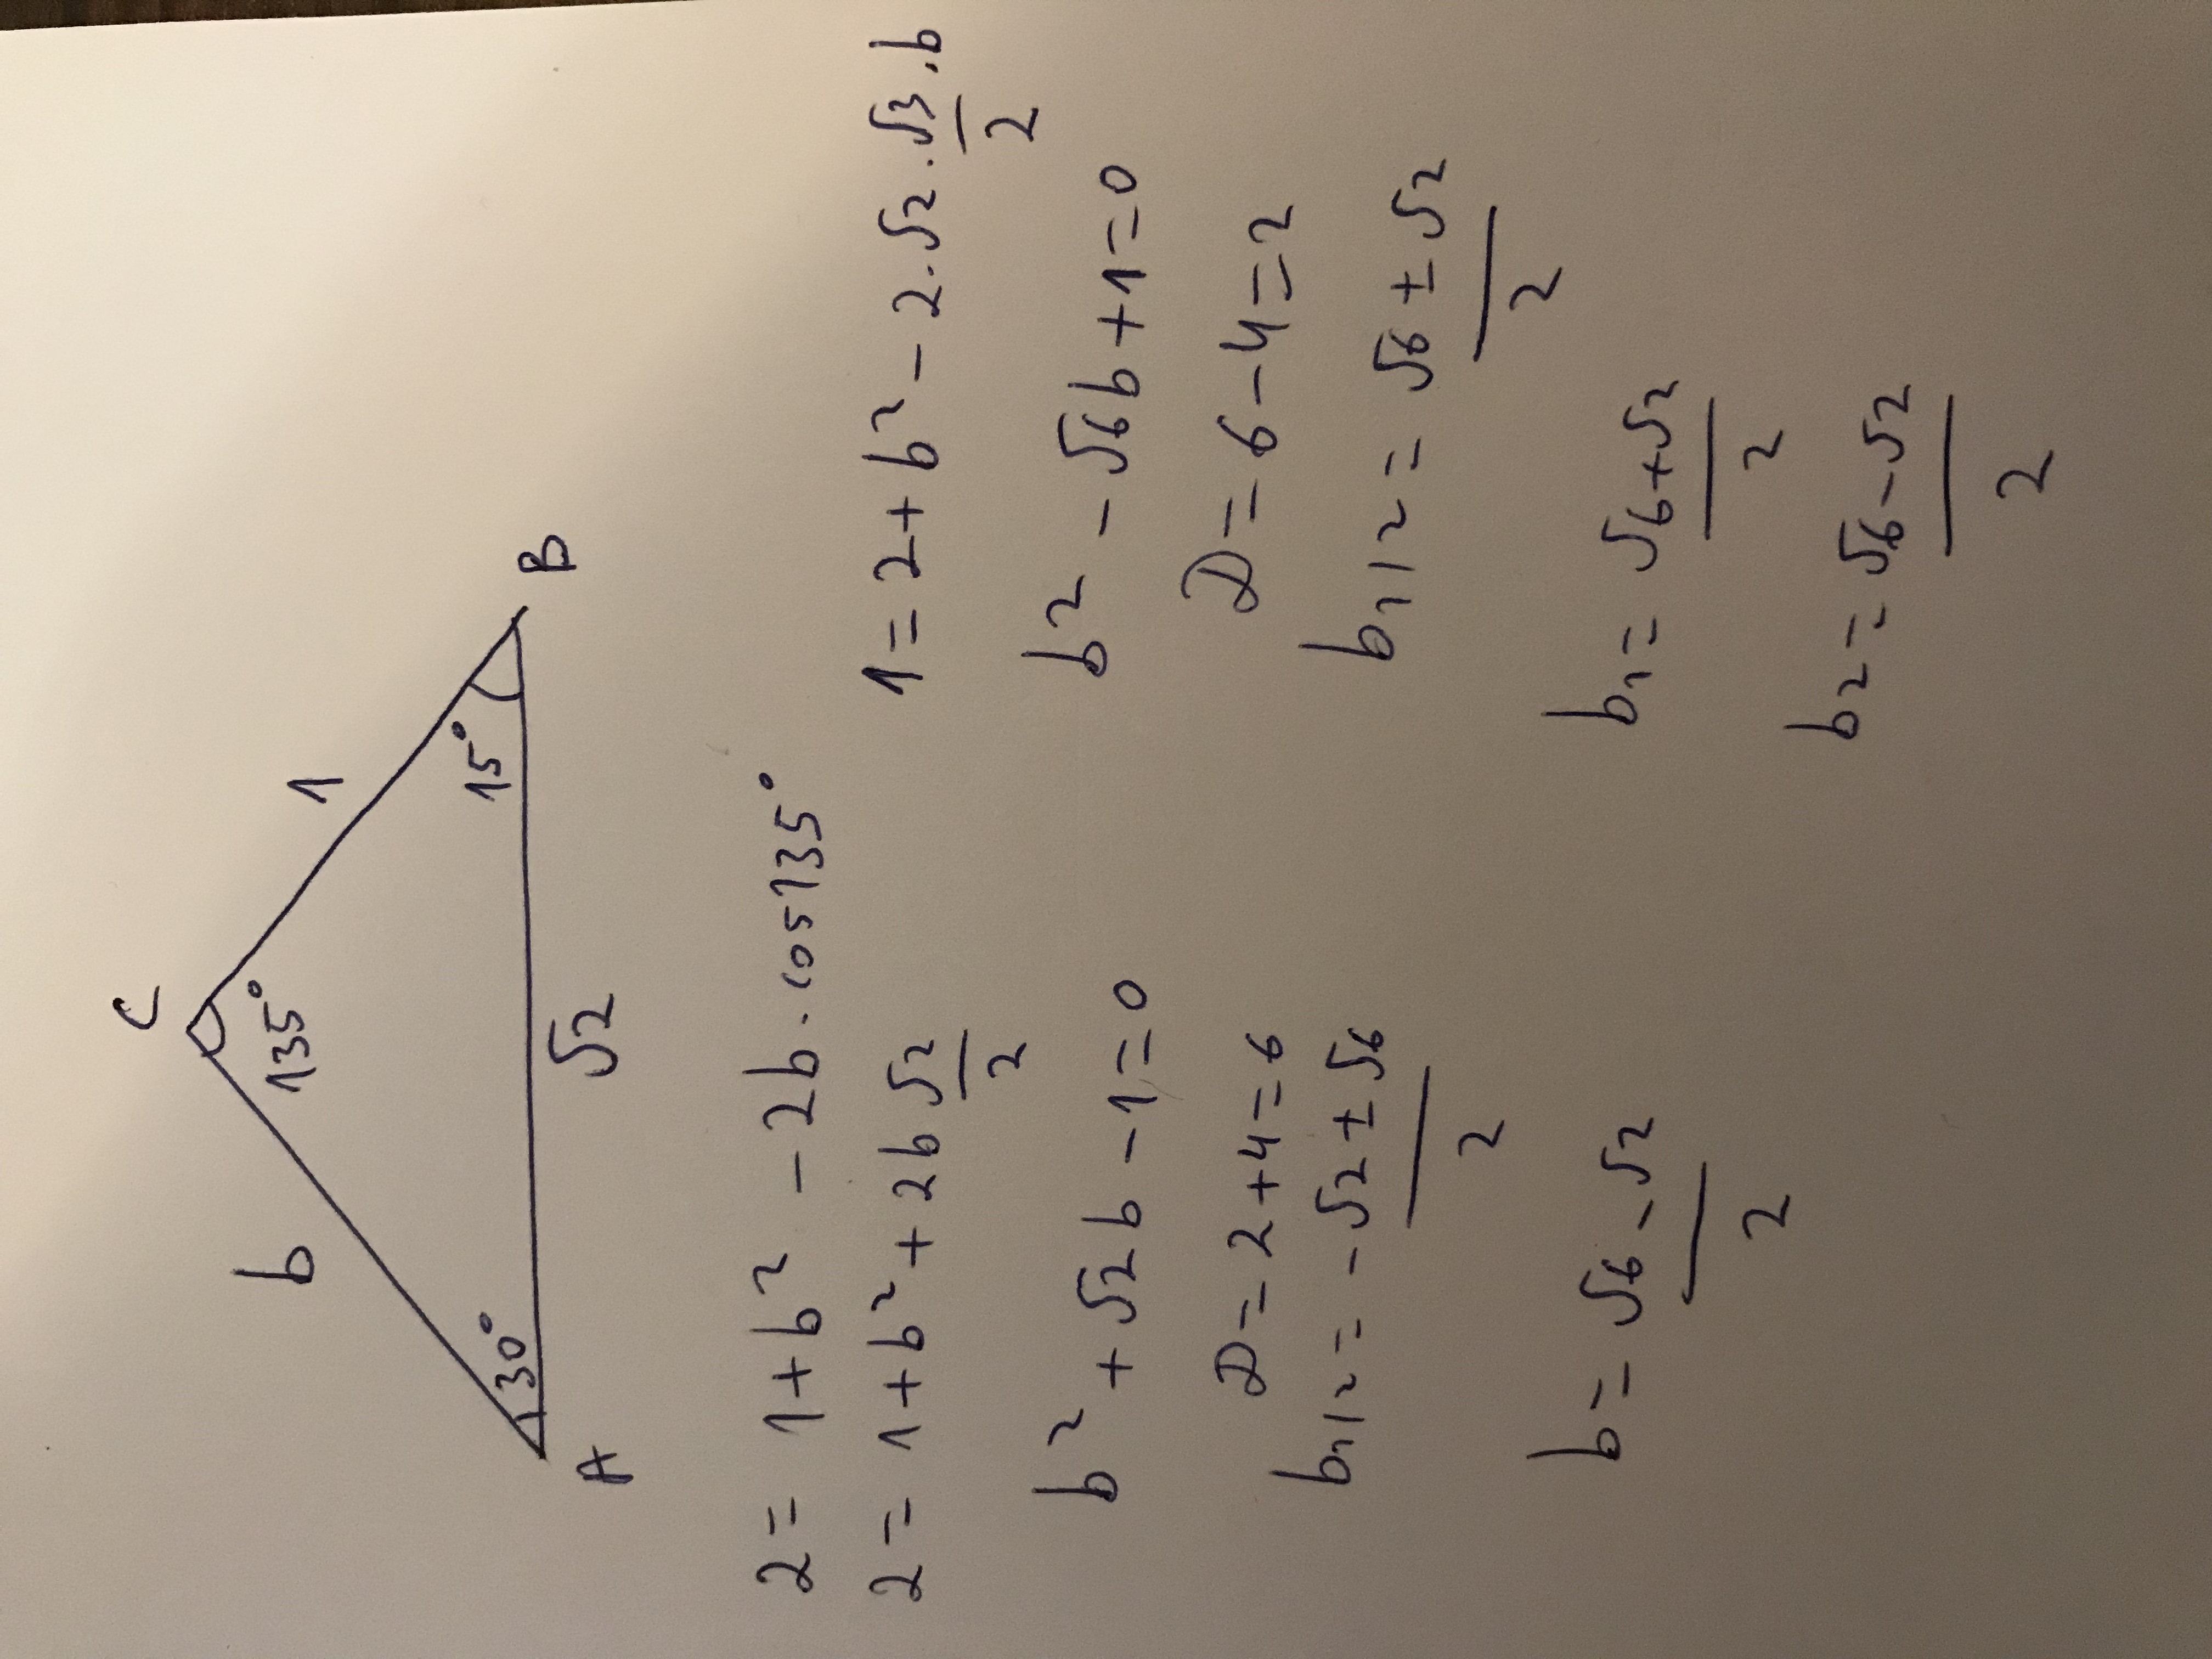 C
b
1
135°
30°
15°
A
√2
B
2 = 1 + b² - 2b · cos135°
2 = 1 + b² + 2b √2/2
b² + √2 b - 1 = 0
D = 2 + 4 = 6
b₁,₂ = -√2 ± √6 / 2
b = √6 - √2 / 2
1 = 2 + b² - 2 · √2 · √3/2 · b
b² - √6 b + 1 = 0
D = 6 - 4 = 2
b₁,₂ = √6 ± √2 / 2
b₁ = √6 + √2 / 2
b₂ = √6 - √2 / 2